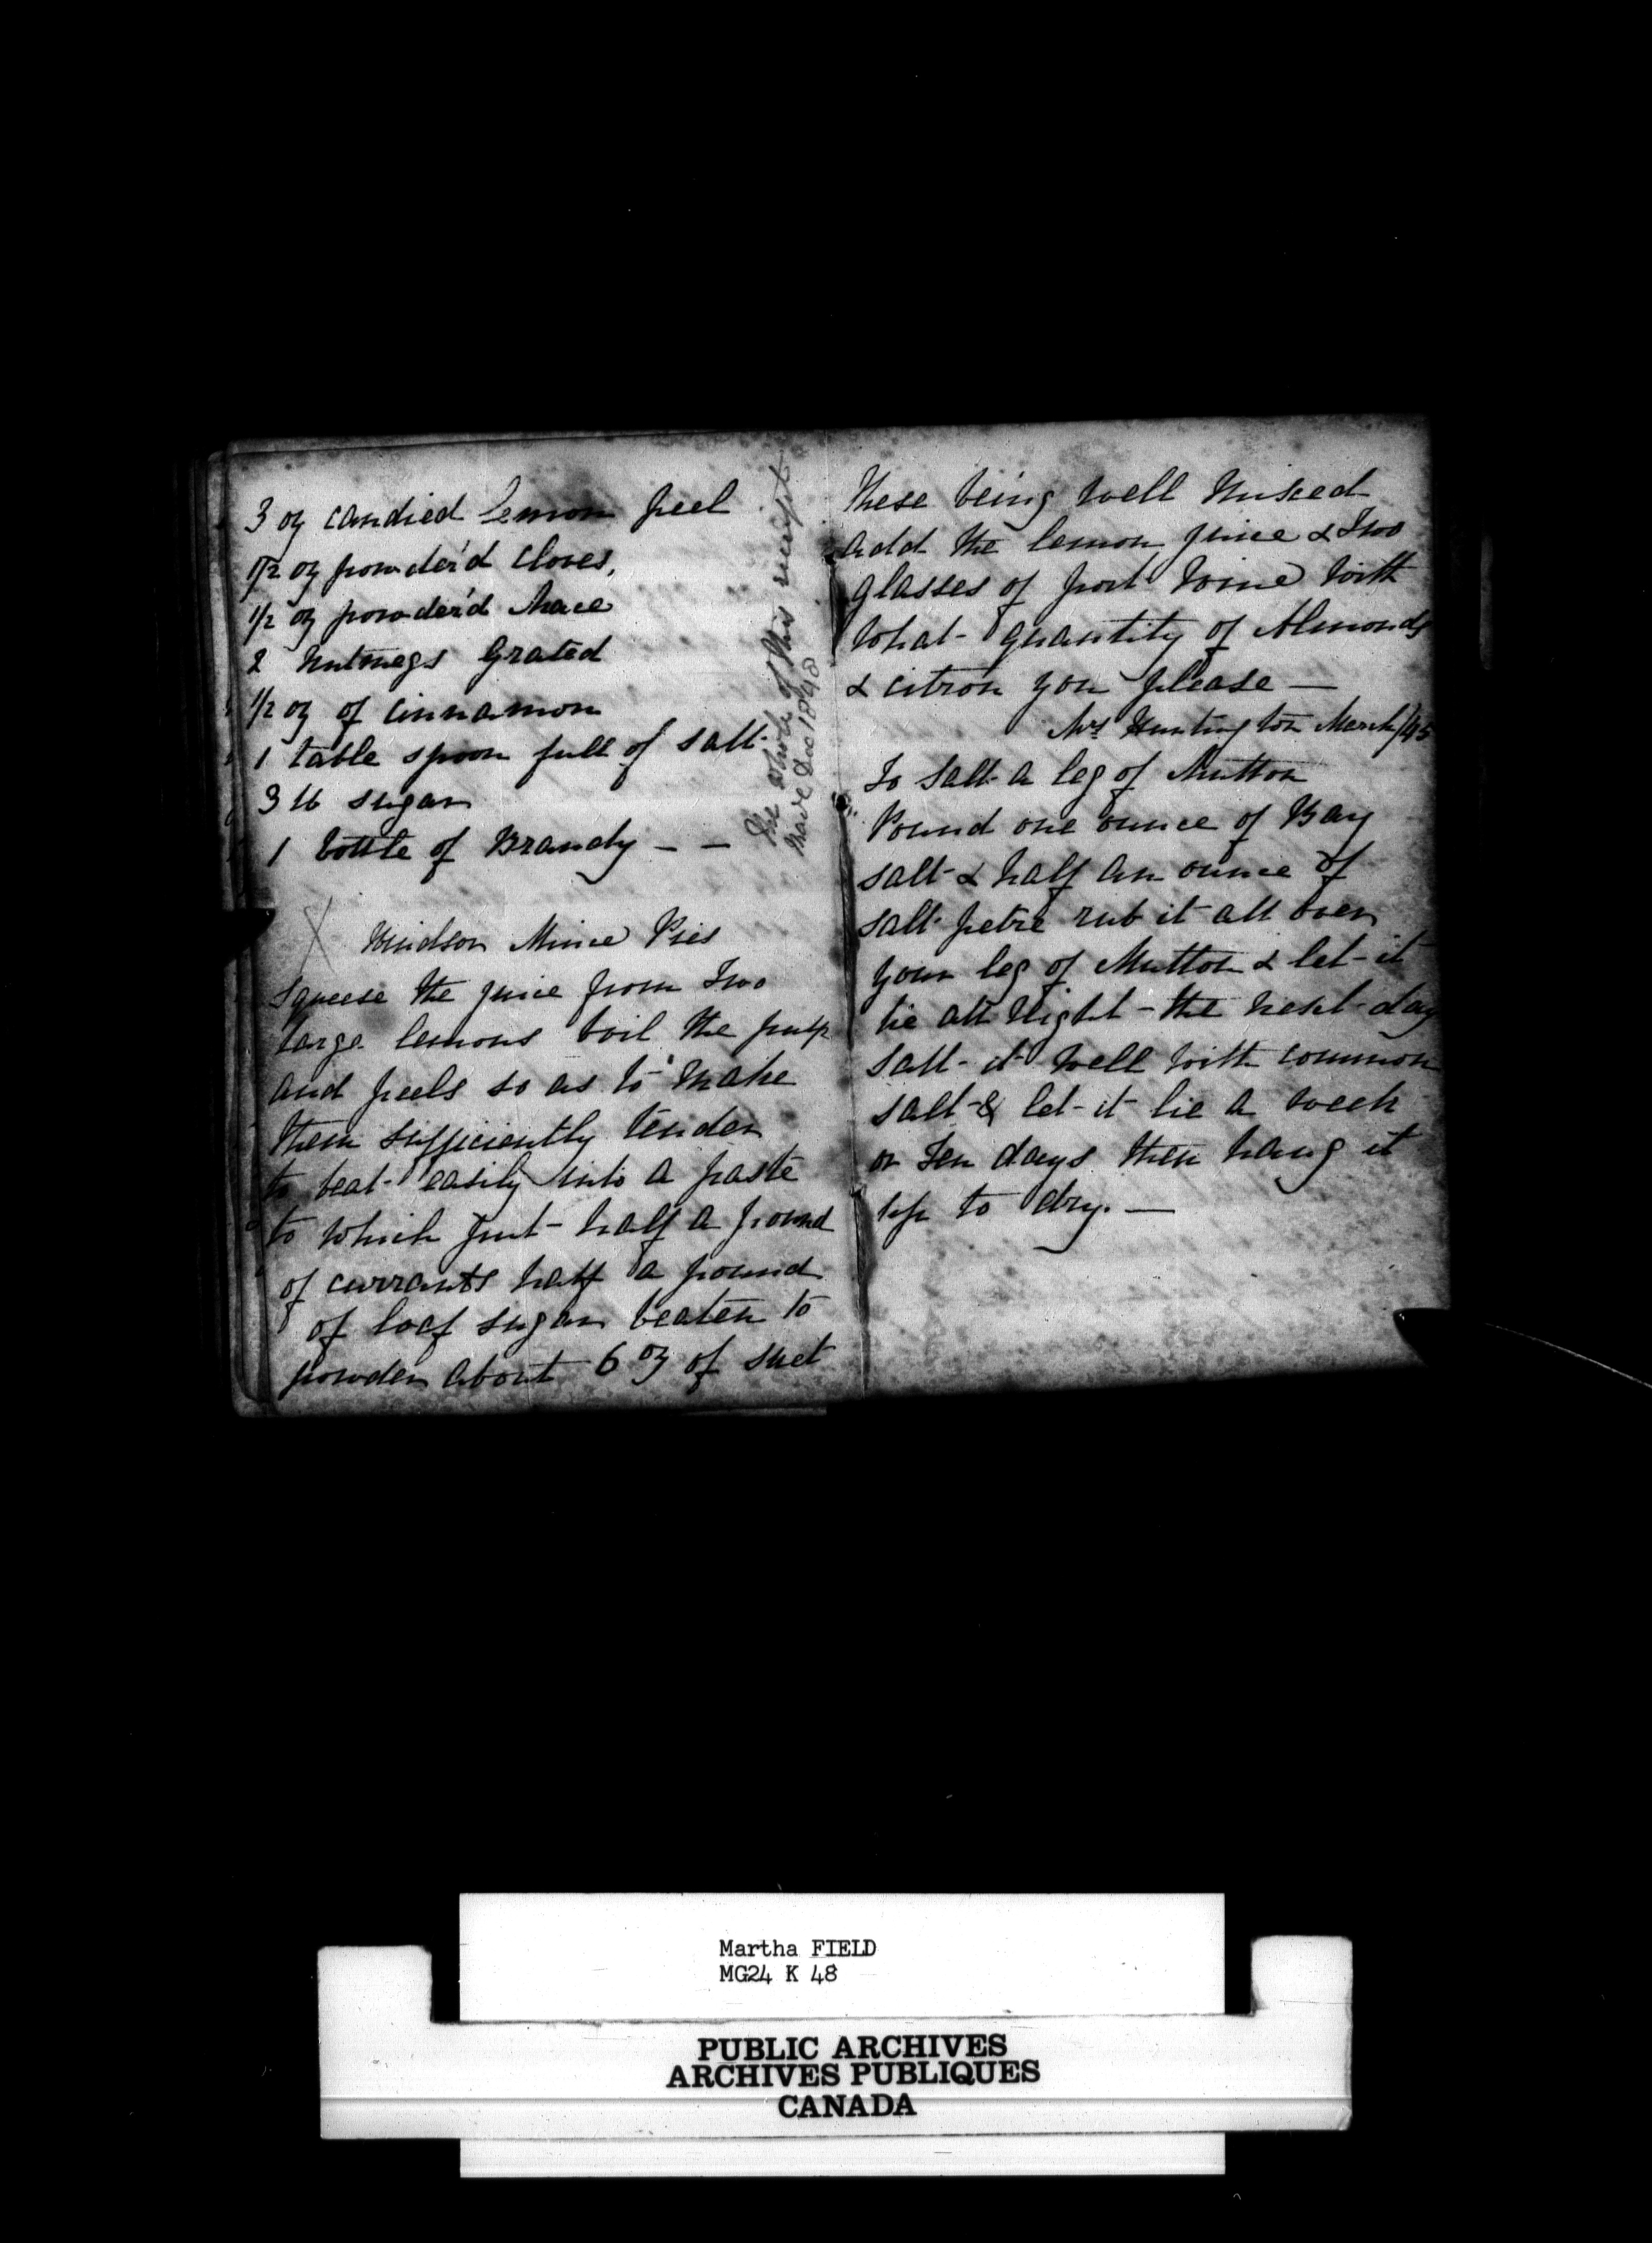 3 oz candied Lemon peel
1/2 oz powder'd Cloves,
1/2 oz powder'd Mace
2 Nutmegs Grated
1/2 oz of cinnamon
1 table spoon full of salt.
3 lb sugar
1 bottle of Brandy - -
The whole of this receipt
have Dec 1848
X
Windson Mince Pies
Squeese the juice from Two
large lemons boil the pulp
and peels so as to make
them sufficiently tender
to beat easily into a paste
to which put - half a pound
of currants half a pound
of loaf sugar beaten to
powder about 6 oz of suet
these being well mixed
add the lemon juice & Two
glasses of port Wine with
what - quantity of Almonds
& citron you please —
Mrs Huntington March/45
To Salt a leg of Mutton
Pound one ounce of Bay
salt - & half an ounce of
salt petre rub it all over
your leg of Mutton & let - it
lie all Night - the next - day
salt - it well with common
salt - & let - it lie a week
or Ten days then hang it
up to dry. —
Martha FIELD
MG24 K 48
PUBLIC ARCHIVES
ARCHIVES PUBLIQUES
CANADA